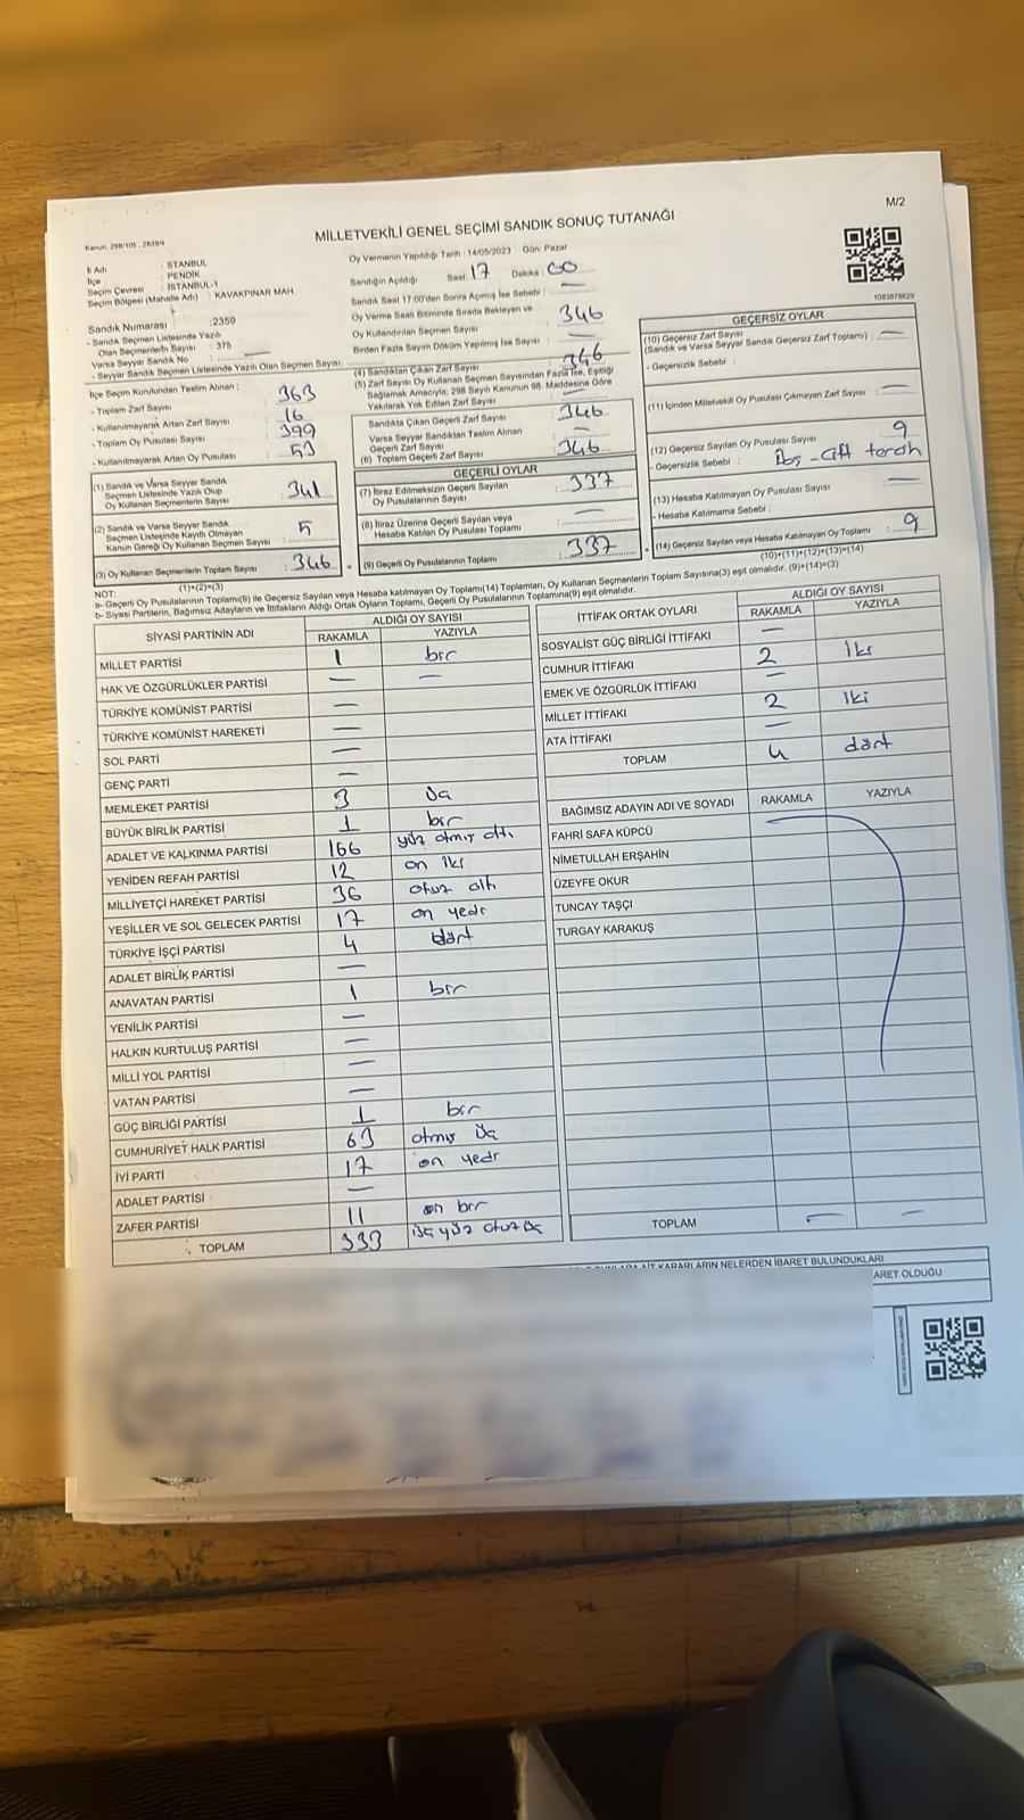 M/2
MİLLETVEKİLİ GENEL SEÇİMİ SANDIK SONUÇ TUTANAĞI
İl Adı : İSTANBUL
İlçe : PENDİK
Seçim Çevresi : İSTANBUL-1
Seçim Bölgesi (Mahalle Adı) : KAVAKPINAR MAH.
Oy Vermenin Yapıldığı Tarih : 14/05/2023 Gün: Pazar
Sandığın Açıldığı Saat : 17 Dakika : 00
Sandık Saat 17:00'den Sonra Açılmış İse Sebebi : —
Oy Verme Saati Bitiminde Sırada Bekleyen ve
Oy Kullandırılan Seçmen Sayısı : 346
Birden Fazla Sayım Döküm Yapılmış İse Sayısı : —
Sandık Numarası : 2359
- Sandık Seçmen Listesinde Yazılı
Olan Seçmenlerin Sayısı : 378
Varsa Seyyar Sandık No : —
- Seyyar Sandık Seçmen Listesinde Yazılı Olan Seçmen Sayısı
İlçe Seçim Kurulundan Teslim Alınan :
- Toplam Zarf Sayısı : 363
- Kullanılmayarak Artan Zarf Sayısı : 16
- Toplam Oy Pusulası Sayısı : 399
- Kullanılmayarak Artan Oy Pusulası : 53
(1) Sandık ve Varsa Seyyar Sandık
Seçmen Listesinde Yazılı Olup
Oy Kullanan Seçmenlerin Sayısı : 341
(2) Sandık ve Varsa Seyyar Sandık
Seçmen Listesinde Kayıtlı Olmayan
Kanun Gereği Oy Kullanan Seçmen Sayısı : 5
(3) Oy Kullanan Seçmenlerin Toplam Sayısı : 346
(1)+(2)=(3)
(4) Sandıktan Çıkan Zarf Sayısı : 346
(5) Zarf Sayısı Oy Kullanan Seçmen Sayısından Fazla İse, Eşitliği
Sağlamak Amacıyla; 298 Sayılı Kanunun 98. Maddesine Göre
Yakılarak Yok Edilen Zarf Sayısı : —
Sandıkta Çıkan Geçerli Zarf Sayısı : 346
Varsa Seyyar Sandıktan Teslim Alınan
Geçerli Zarf Sayısı : —
(6) Toplam Geçerli Zarf Sayısı : 346
GEÇERLİ OYLAR
(7) İtiraz Edilmeksizin Geçerli Sayılan
Oy Pusulalarının Sayısı : 337
(8) İtiraz Üzerine Geçerli Sayılan veya
Hesaba Katılan Oy Pusulası Toplamı : —
(9) Geçerli Oy Pusulalarının Toplamı : 337
GEÇERSİZ OYLAR
(10) Geçersiz Zarf Sayısı
(Sandık ve Varsa Seyyar Sandık Geçersiz Zarf Toplamı) : —
- Geçersizlik Sebebi :
(11) İçinden Milletvekili Oy Pusulası Çıkmayan Zarf Sayısı : —
(12) Geçersiz Sayılan Oy Pusulası Sayısı : 9
- Geçersizlik Sebebi : Boş - Çift tercih
(13) Hesaba Katılmayan Oy Pusulası Sayısı : —
- Hesaba Katılmama Sebebi :
(14) Geçersiz Sayılan veya Hesaba Katılmayan Oy Toplamı : 9
(10)+(11)+(12)+(13)=(14)
NOT:
a- Geçerli Oy Pusulalarının Toplamı(9) ile Geçersiz Sayılan veya Hesaba katılmayan Oy Toplamı(14) Toplamları, Oy Kullanan Seçmenlerin Toplam Sayısına(3) eşit olmalıdır. (9)+(14)=(3)
b- Siyasi Partilerin, Bağımsız Adayların ve İttifakların Aldığı Ortak Oyların Toplamı, Geçerli Oy Pusulalarının Toplamına(9) eşit olmalıdır.
SİYASİ PARTİNİN ADI ALDIĞI OY SAYISI
RAKAMLA YAZIYLA
MİLLET PARTİSİ 1 bir
HAK VE ÖZGÜRLÜKLER PARTİSİ — —
TÜRKİYE KOMÜNİST PARTİSİ —
TÜRKİYE KOMÜNİST HAREKETİ —
SOL PARTİ —
GENÇ PARTİ —
MEMLEKET PARTİSİ 3 üç
BÜYÜK BİRLİK PARTİSİ 1 bir
ADALET VE KALKINMA PARTİSİ 166 yüz atmış altı
YENİDEN REFAH PARTİSİ 12 on iki
MİLLİYETÇİ HAREKET PARTİSİ 36 otuz altı
YEŞİLLER VE SOL GELECEK PARTİSİ 17 on yedi
TÜRKİYE İŞÇİ PARTİSİ 4 dört
ADALET BİRLİK PARTİSİ —
ANAVATAN PARTİSİ 1 bir
YENİLİK PARTİSİ —
HALKIN KURTULUŞ PARTİSİ —
MİLLİ YOL PARTİSİ —
VATAN PARTİSİ —
GÜÇ BİRLİĞİ PARTİSİ 1 bir
CUMHURİYET HALK PARTİSİ 63 atmış üç
İYİ PARTİ 17 on yedi
ADALET PARTİSİ —
ZAFER PARTİSİ 11 on bir
TOPLAM 333 üç yüz otuz üç
İTTİFAK ORTAK OYLARI ALDIĞI OY SAYISI
RAKAMLA YAZIYLA
SOSYALİST GÜÇ BİRLİĞİ İTTİFAKI —
CUMHUR İTTİFAKI 2 iki
EMEK VE ÖZGÜRLÜK İTTİFAKI —
MİLLET İTTİFAKI 2 iki
ATA İTTİFAKI —
TOPLAM 4 dört
BAĞIMSIZ ADAYIN ADI VE SOYADI RAKAMLA YAZIYLA
FAHRİ SAFA KÜPCÜ
NİMETULLAH ERŞAHİN
ÜZEYFE OKUR
TUNCAY TAŞÇI
TURGAY KARAKUŞ
TOPLAM — —
KARARLARIN NELERDEN İBARET BULUNDUKLARI
ARET OLDUĞU